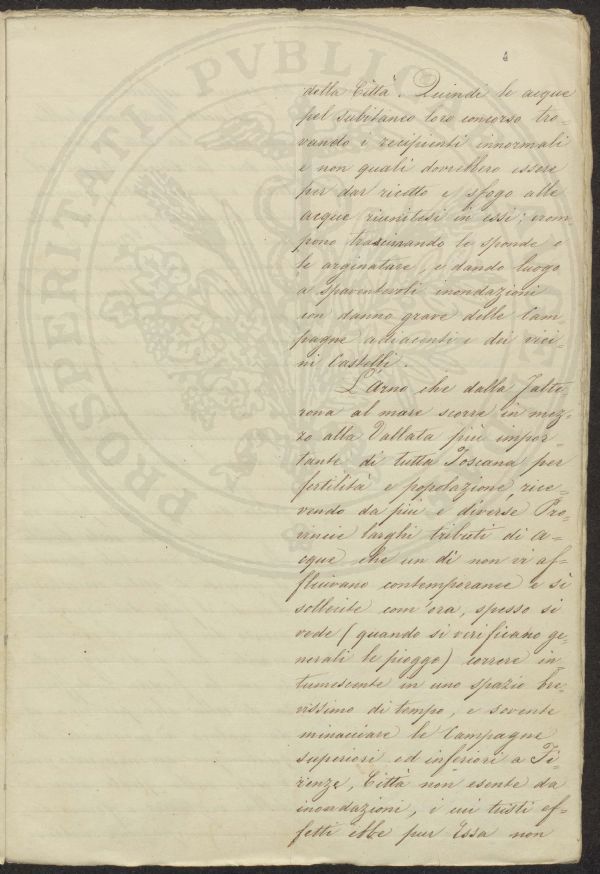 4
della Città. Quindi le acque
pel subitaneo loro concorso tro-
vando i recipienti innormali
e non quali dovrebbero essere
per dar ricetto e sfogo alle
acque riunitesi in essi: rom-
pono trascinando le sponde e
le arginature, e dando luogo
a spaventevoli inondazioni
con danno grave delle Cam-
pagne adiacenti e dei vici-
ni Castelli.
L'Arno che dalla Falte-
rona al mare scorre in mez-
zo alla Vallata più impor-
tante di tutta Toscana per
fertilità e popolazione, rice-
vendo da più e diverse Pro-
vincie larghi tributi di a-
cque che un dì non vi af-
fluivano contemporanee e sì
sollecite com'ora, spesso si
vede (quando si verificano ge-
nerali le piogge) correre in-
tumescente in uno spazio bre-
vissimo di tempo, e sovente
minacciare le Campagne
superiori ed inferiori a Fi-
renze, Città non esente da
inondazioni, i cui tristi ef-
fetti ebbe pur Essa non
PROSPERITATI PVBLIC